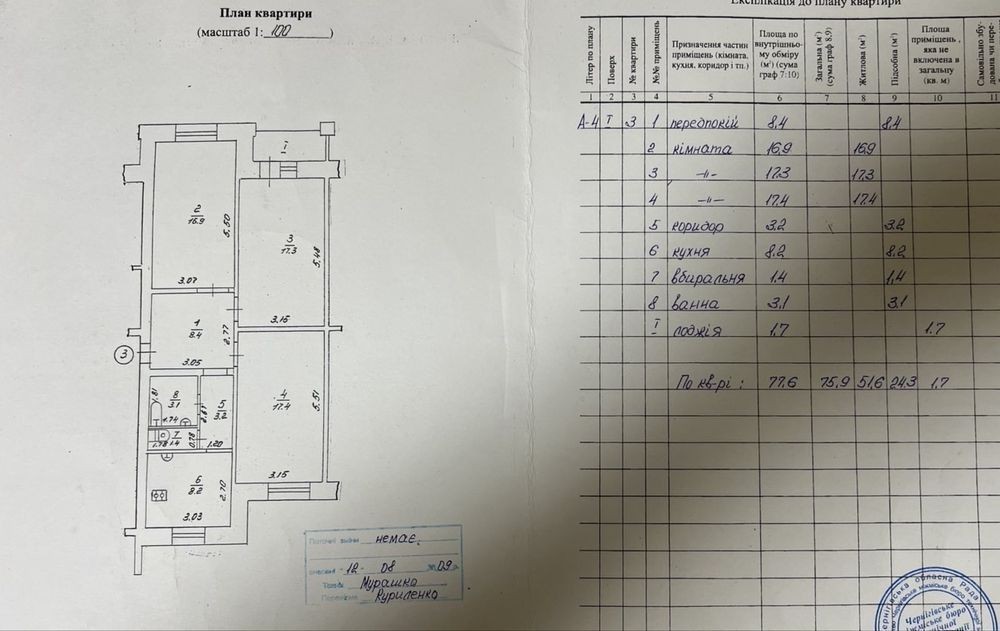 План квартири
(масштаб 1: 100 )
I
2
16.9
5.50
3.07
3
17.3
5.48
3.16
1
8.4
2.77
3.05
3
8
3.1
1.81
1.74
5
3.2
2.67
1.20
7
1.4
1.78
0.78
4
17.4
5.51
3.15
6
8.2
2.70
3.03
Поточні зміни немає.
внесені "12" 08 09
Технік Мурашко
Перевірив Куриленко
Експлікація до плану квартири
Літер по плану
Поверх
№ квартири
№№ приміщень
Призначення частин приміщень (кімната, кухня, коридор і тп.)
Площа по внутрішньому обміру (м²) (сума граф 7:10)
Загальна (м²) (сума граф 8,9)
Житлова (м²)
Підсобна (м²)
Площа приміщень, яка не включена в загальну (кв. м)
Самовільно збудована чи пере-
1 2 3 4 5 6 7 8 9 10 11
А-4 I 3 1 передпокій 8.4 8.4
2 кімната 16.9 16.9
3 -"- 17.3 17.3
4 -"- 17.4 17.4
5 коридор 3.2 3.2
6 кухня 8.2 8.2
7 вбиральня 1.4 1.4
8 ванна 3.1 3.1
I лоджія 1.7 1.7
По кв-рі : 77.6 75.9 51.6 24.3 1.7
Чернігівська обласна Рада
Чернігівське
міжміське бюро